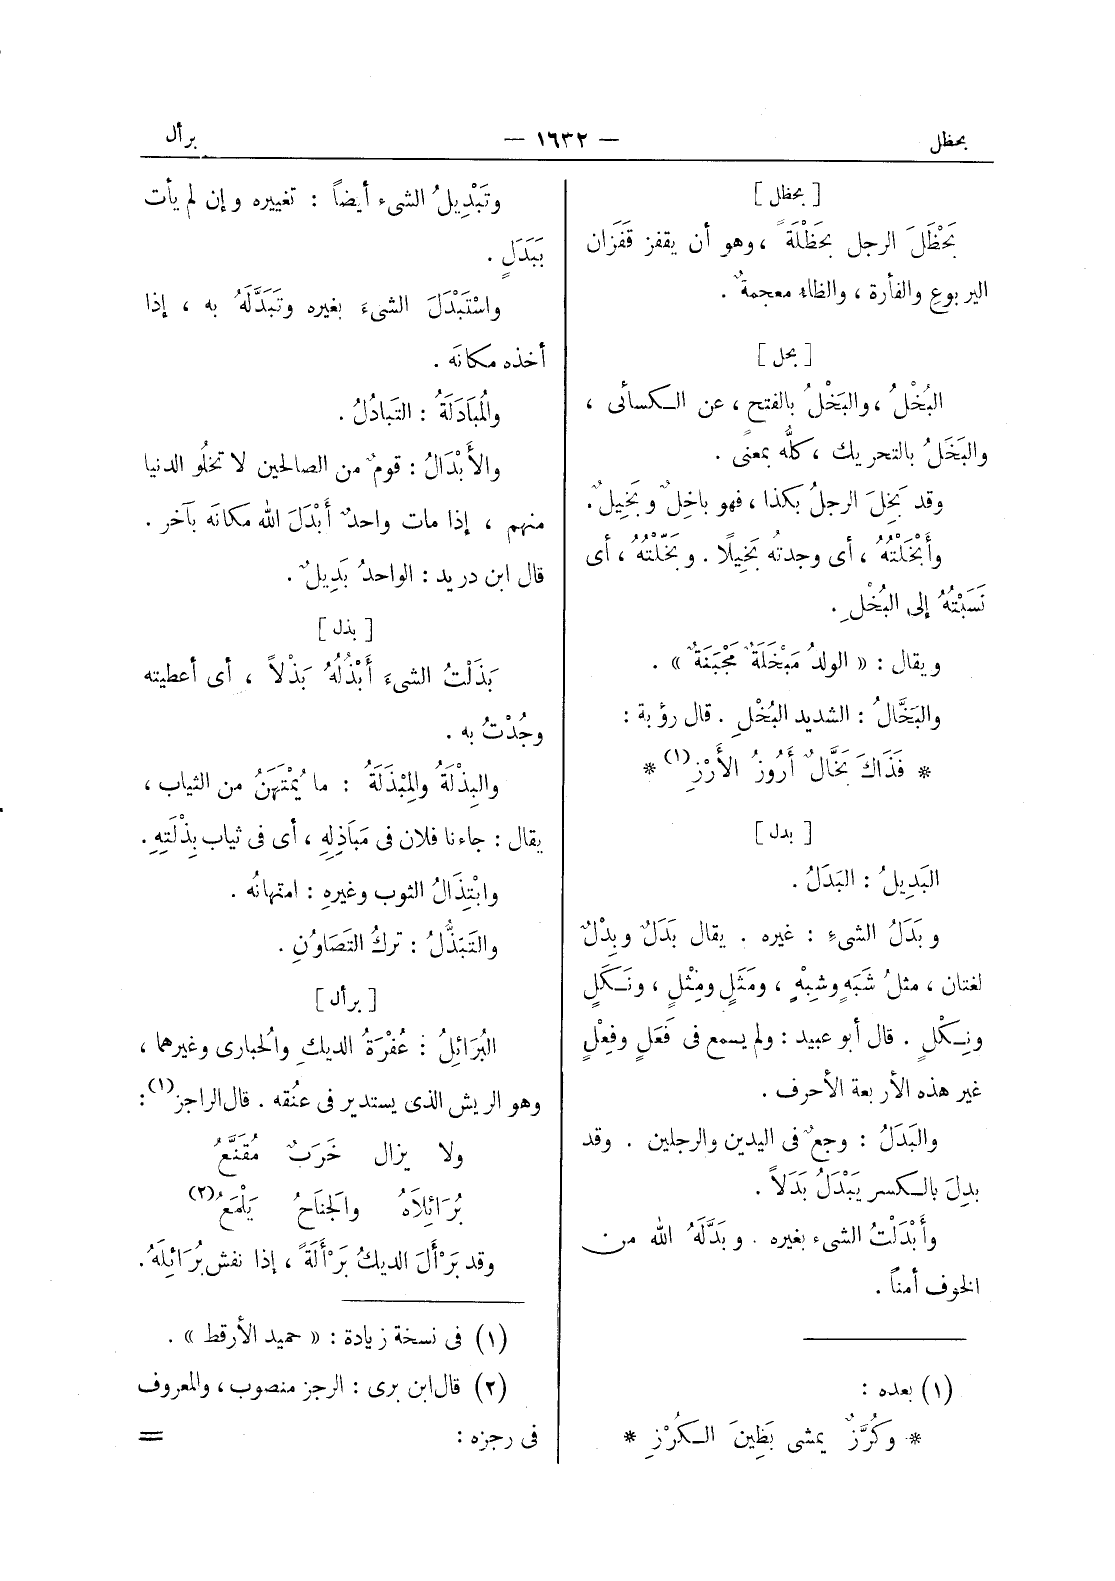 بحظل
— ١٦٣٢ —
برأل
[ بحظل ]
بَحْظَلَ الرجل بحَظْلَةً ، وهو أن يقفز قَفَزَان
اليربوعِ والفأرة ، والظاء معجمةٌ .
[ بخل ]
البُخْلُ ، والبَخْلُ بالفتح ، عن الكسائى ،
والبَخَلُ بالتحريك ، كلُّه بمعنًى .
وقد بَخِلَ الرجلُ بكذا ، فهو باخِلٌ وبَخِيلٌ .
وأَبْخَلْتُهُ ، أى وجدتُه بَخِيلًا . وبَخَّلْتُهُ ، أى
نَسَبْتُهُ إلى البُخْلِ .
ويقال : « الولدُ مَبْخَلَةٌ مَجْبَنَةٌ » .
والبَخَّالُ : الشديد البُخْلِ . قال رؤبة :
* فَذَاكَ بَخَّالٌ أَرُوزُ الأَرْزِ (١) *
[ بدل ]
البَدِيلُ : البَدَلُ .
وبَدَلُ الشىءِ : غيره . يقال بَدَلٌ وبِدْلٌ
لغتان ، مثلُ شَبَهٍ وشِبْهٍ ، ومَثَلٍ ومِثْلٍ ، ونَكَلٍ
ونِكْلٍ . قال أبو عبيد : ولم يسمع فى فَعَلٍ وفِعْلٍ
غير هذه الأربعة الأحرف .
والبَدَلُ : وجعٌ فى اليدين والرجلين . وقد
بدِلَ بالكسر يَبْدَلُ بَدَلاً .
وأَبْدَلْتُ الشىء بغيره . وبَدَّلَهُ الله من
الخوف أمناً .
(١) بعده :
* وكُرَّزٌ يمشى بَطِينَ الكُرْزِ *
وتَبْدِيلُ الشىء أيضاً : تغييره وإن لم يأت
بِبَدَلٍ .
واسْتَبْدَلَ الشىءَ بغيره وتَبَدَّلَهُ به ، إذا
أخذه مكانَه .
والمُبَادَلَةُ : التَبادُلُ .
والأَبْدَالُ : قومٌ من الصالحين لا تخلُو الدنيا
منهم ، إذا مات واحدٌ أَبْدَلَ الله مكانَه بآخر .
قال ابن دريد : الواحدُ بَدِيلٌ .
[ بذل ]
بَذَلْتُ الشىءَ أَبْذُلُهُ بَذْلاً ، أى أعطيته
وجُدْتُ به .
والبِذْلَةُ والمِبْذَلَةُ : ما يُمْتَهَنُ من الثياب ،
يقال : جاءنا فلان فى مَبَاذِلِهِ ، أى فى ثياب بِذْلَتِهِ .
وابْتِذَالُ الثوب وغيرِهِ : امتهانُه .
والتَبَذُّلُ : تركُ التَصَاوُنِ .
[ برأل ]
البُرَائِلُ : عُفْرَةُ الديك والحُبارى وغيرهما ،
وهو الريش الذى يستدير فى عنُقه . قال الراجز (١) :
ولا يزال خَرَبٌ مُقَنَّعُ
بُرَائِلاَهُ والجَنَاحُ يَلْمَعُ (٢)
وقد بَرْأَلَ الديكُ بَرْأَلَةً ، إذا نفش بُرَائِلَهُ .
(١) فى نسخة زيادة : « حميد الأرقط » .
(٢) قال ابن برى : الرجز منصوب ، والمعروف
فى رجزه : =